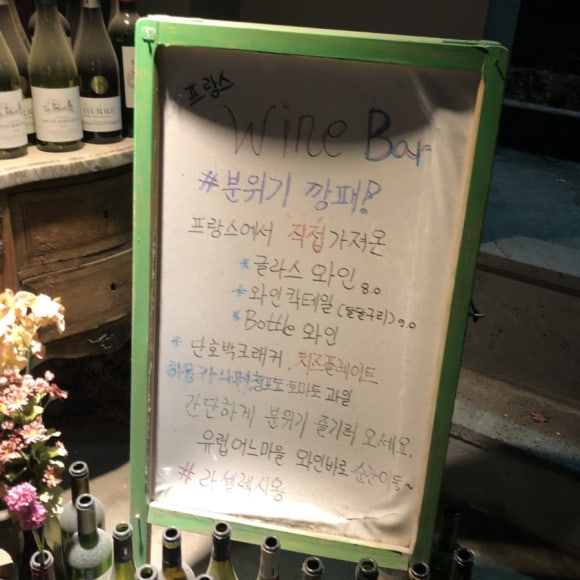 프랑스
Wine Bar
#분위기 깡패!
프랑스에서 직접 가져온
*글라스 와인 8.0
*와인칵테일 (달달구리) 9.0
*Bottle 와인
*단호박크래커, 치즈플레이트
청포도 토마토 과일
간단하게 분위기 즐기러 오세요.
유럽 어느마을 와인바로 순간이동~
#라셀렉시옹